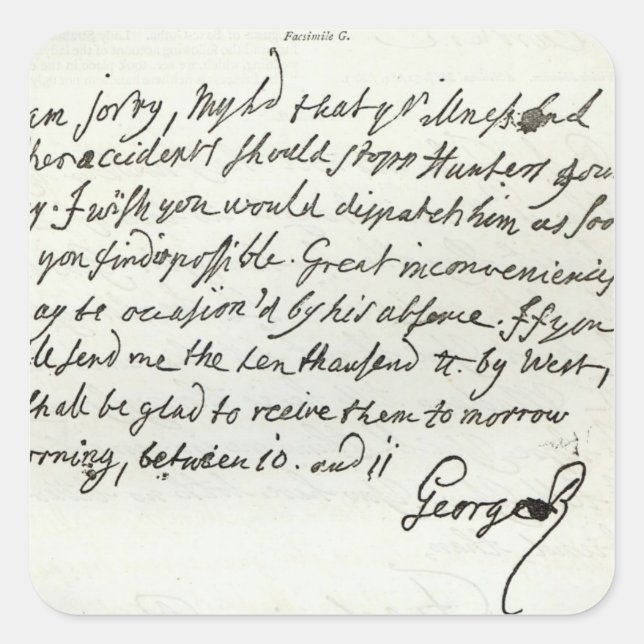 Facsimile G.
am sorry, Mylhd that yr illness and
her accidents should stopn Hunters jour
y. I wish you would dispatch him as soo
you find it possible. Great inconveniency
ay be occasion'd by his absence. If you
ll send me the ten thousend tt. by West,
shall be glad to rceive them to morrow
orning, between 10. and 11
George R